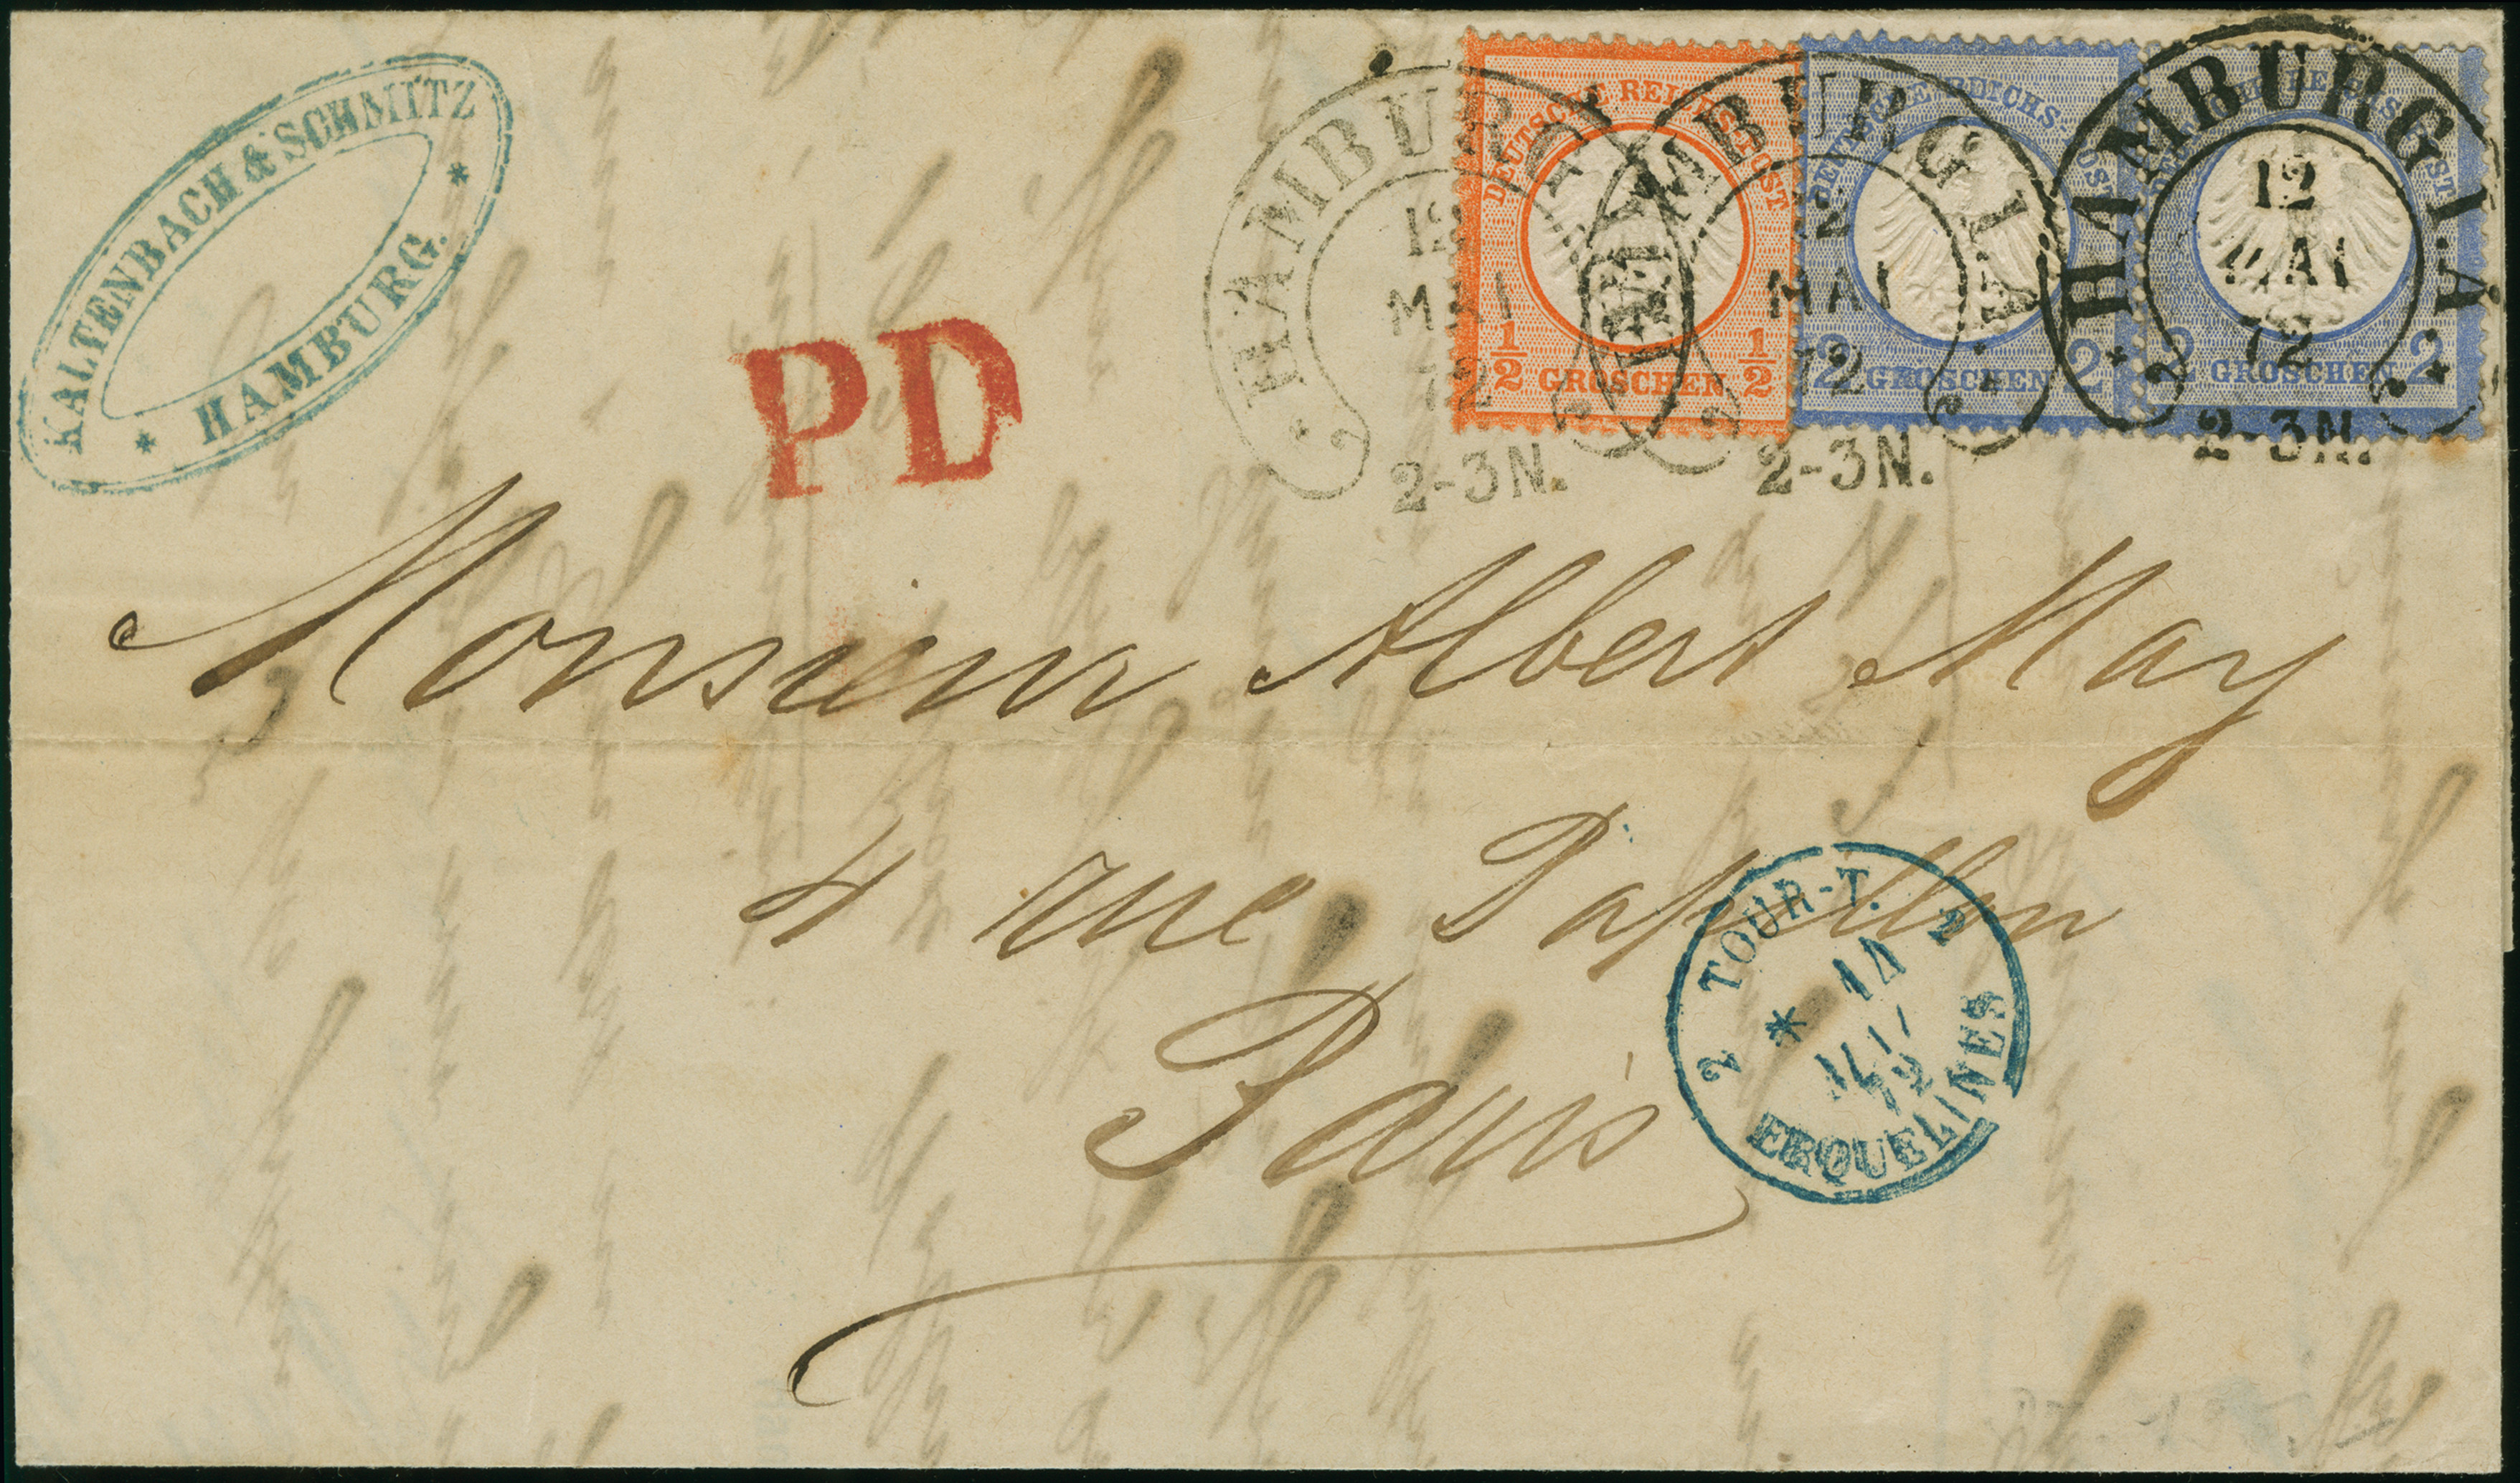 KALTENBACH & SCHMITZ
* HAMBURG. *
PD
HAMBURG I.A.
12
MAI
72
2-3N.
HAMBURG I.A.
12
MAI
72
2-3N.
HAMBURG I.A.
12
MAI
72
2-3N.
DEUTSCHE REICHS-POST
1/2 GROSCHEN 1/2
DEUTSCHE REICHS-POST
2 GROSCHEN 2
DEUTSCHE REICHS-POST
2 GROSCHEN 2
Monsieur Albert May
4 rue Papillon
Paris
2 TOUR-T. 2
* 14
72
ERQUELINES